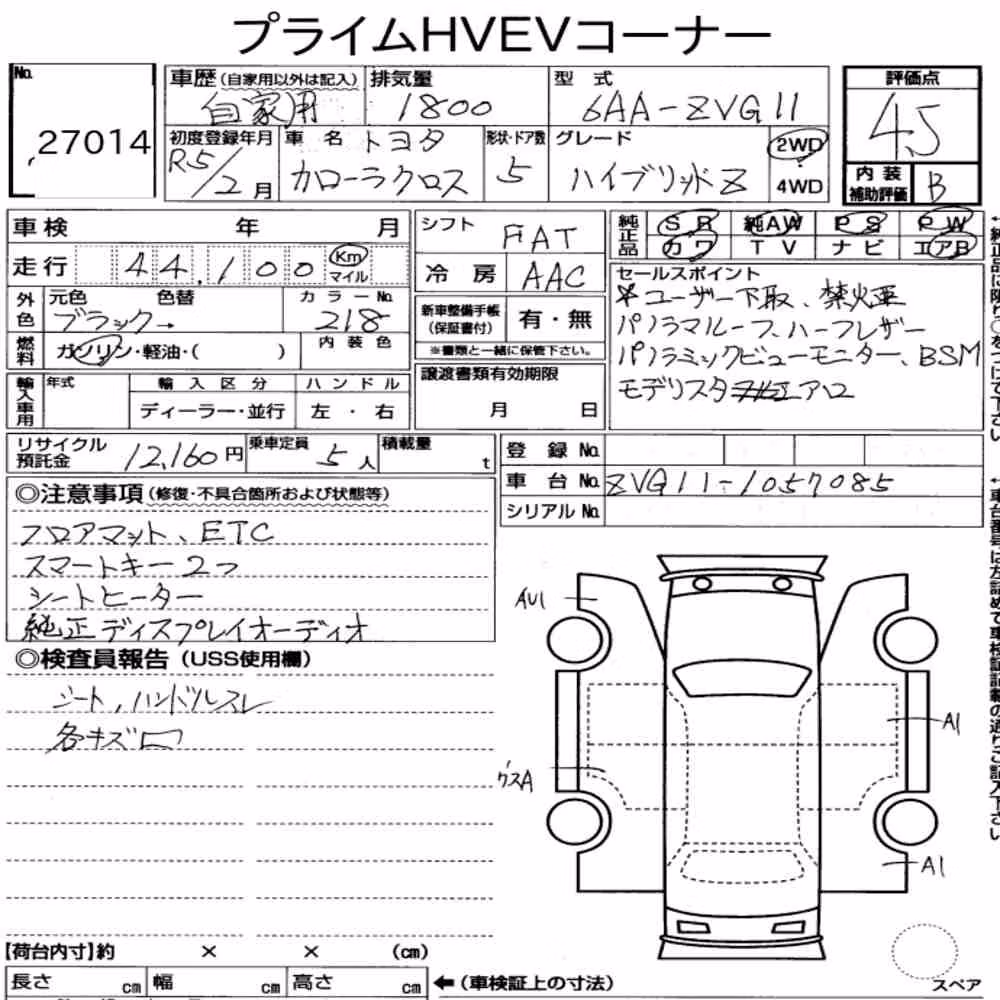 プライムHVEVコーナー
No. 27014
車歴(自家用以外は記入) 自家用
排気量 1800
型式 6AA-ZVG11
評価点 4.5
初度登録年月 R5/2月
車名 トヨタ カローラクロス
形状・ドア数 5
グレード ハイブリッドZ
2WD
4WD
内装補助評価 B
車検 年 月
シフト FAT
純正品 SR 純AW PS PW
カワ TV ナビ エアB
走行 44,100 Km マイル
冷房 AAC
外色 元色 色替 カラーNo.
ブラック→ 218
新車整備手帳(保証書付) 有・無
※書類と一緒に保管下さい。
燃料 ガソリン・軽油・( ) 内装色
セールスポイント
ユーザー下取、禁火車
パノラマルーフ、ハーフレザー
パノラミックビューモニター、BSM
モデリスタ エアロ
輸入車用 年式 輸入区分 ハンドル
ディーラー・並行 左・右
譲渡書類有効期限
月 日
リサイクル預託金 12,160円
乗車定員 5人
積載量 t
登録No.
車台No. ZVG11-1057085
シリアルNo.
◎注意事項(修復・不具合箇所および状態等)
フロアマット、ETC
スマートキー2つ
シートヒーター
純正ディスプレイオーディオ
◎検査員報告(USS使用欄)
シート,ハンドルスレ
各キズ凹
AU1
A1
A1
【荷台内寸】約 × × (cm)
長さ cm 幅 cm 高さ cm
←(車検証上の寸法)
スペア
←純正品に限り○をつけて下さい
←車台番号は左詰めで車検証記載の通りご記入下さい